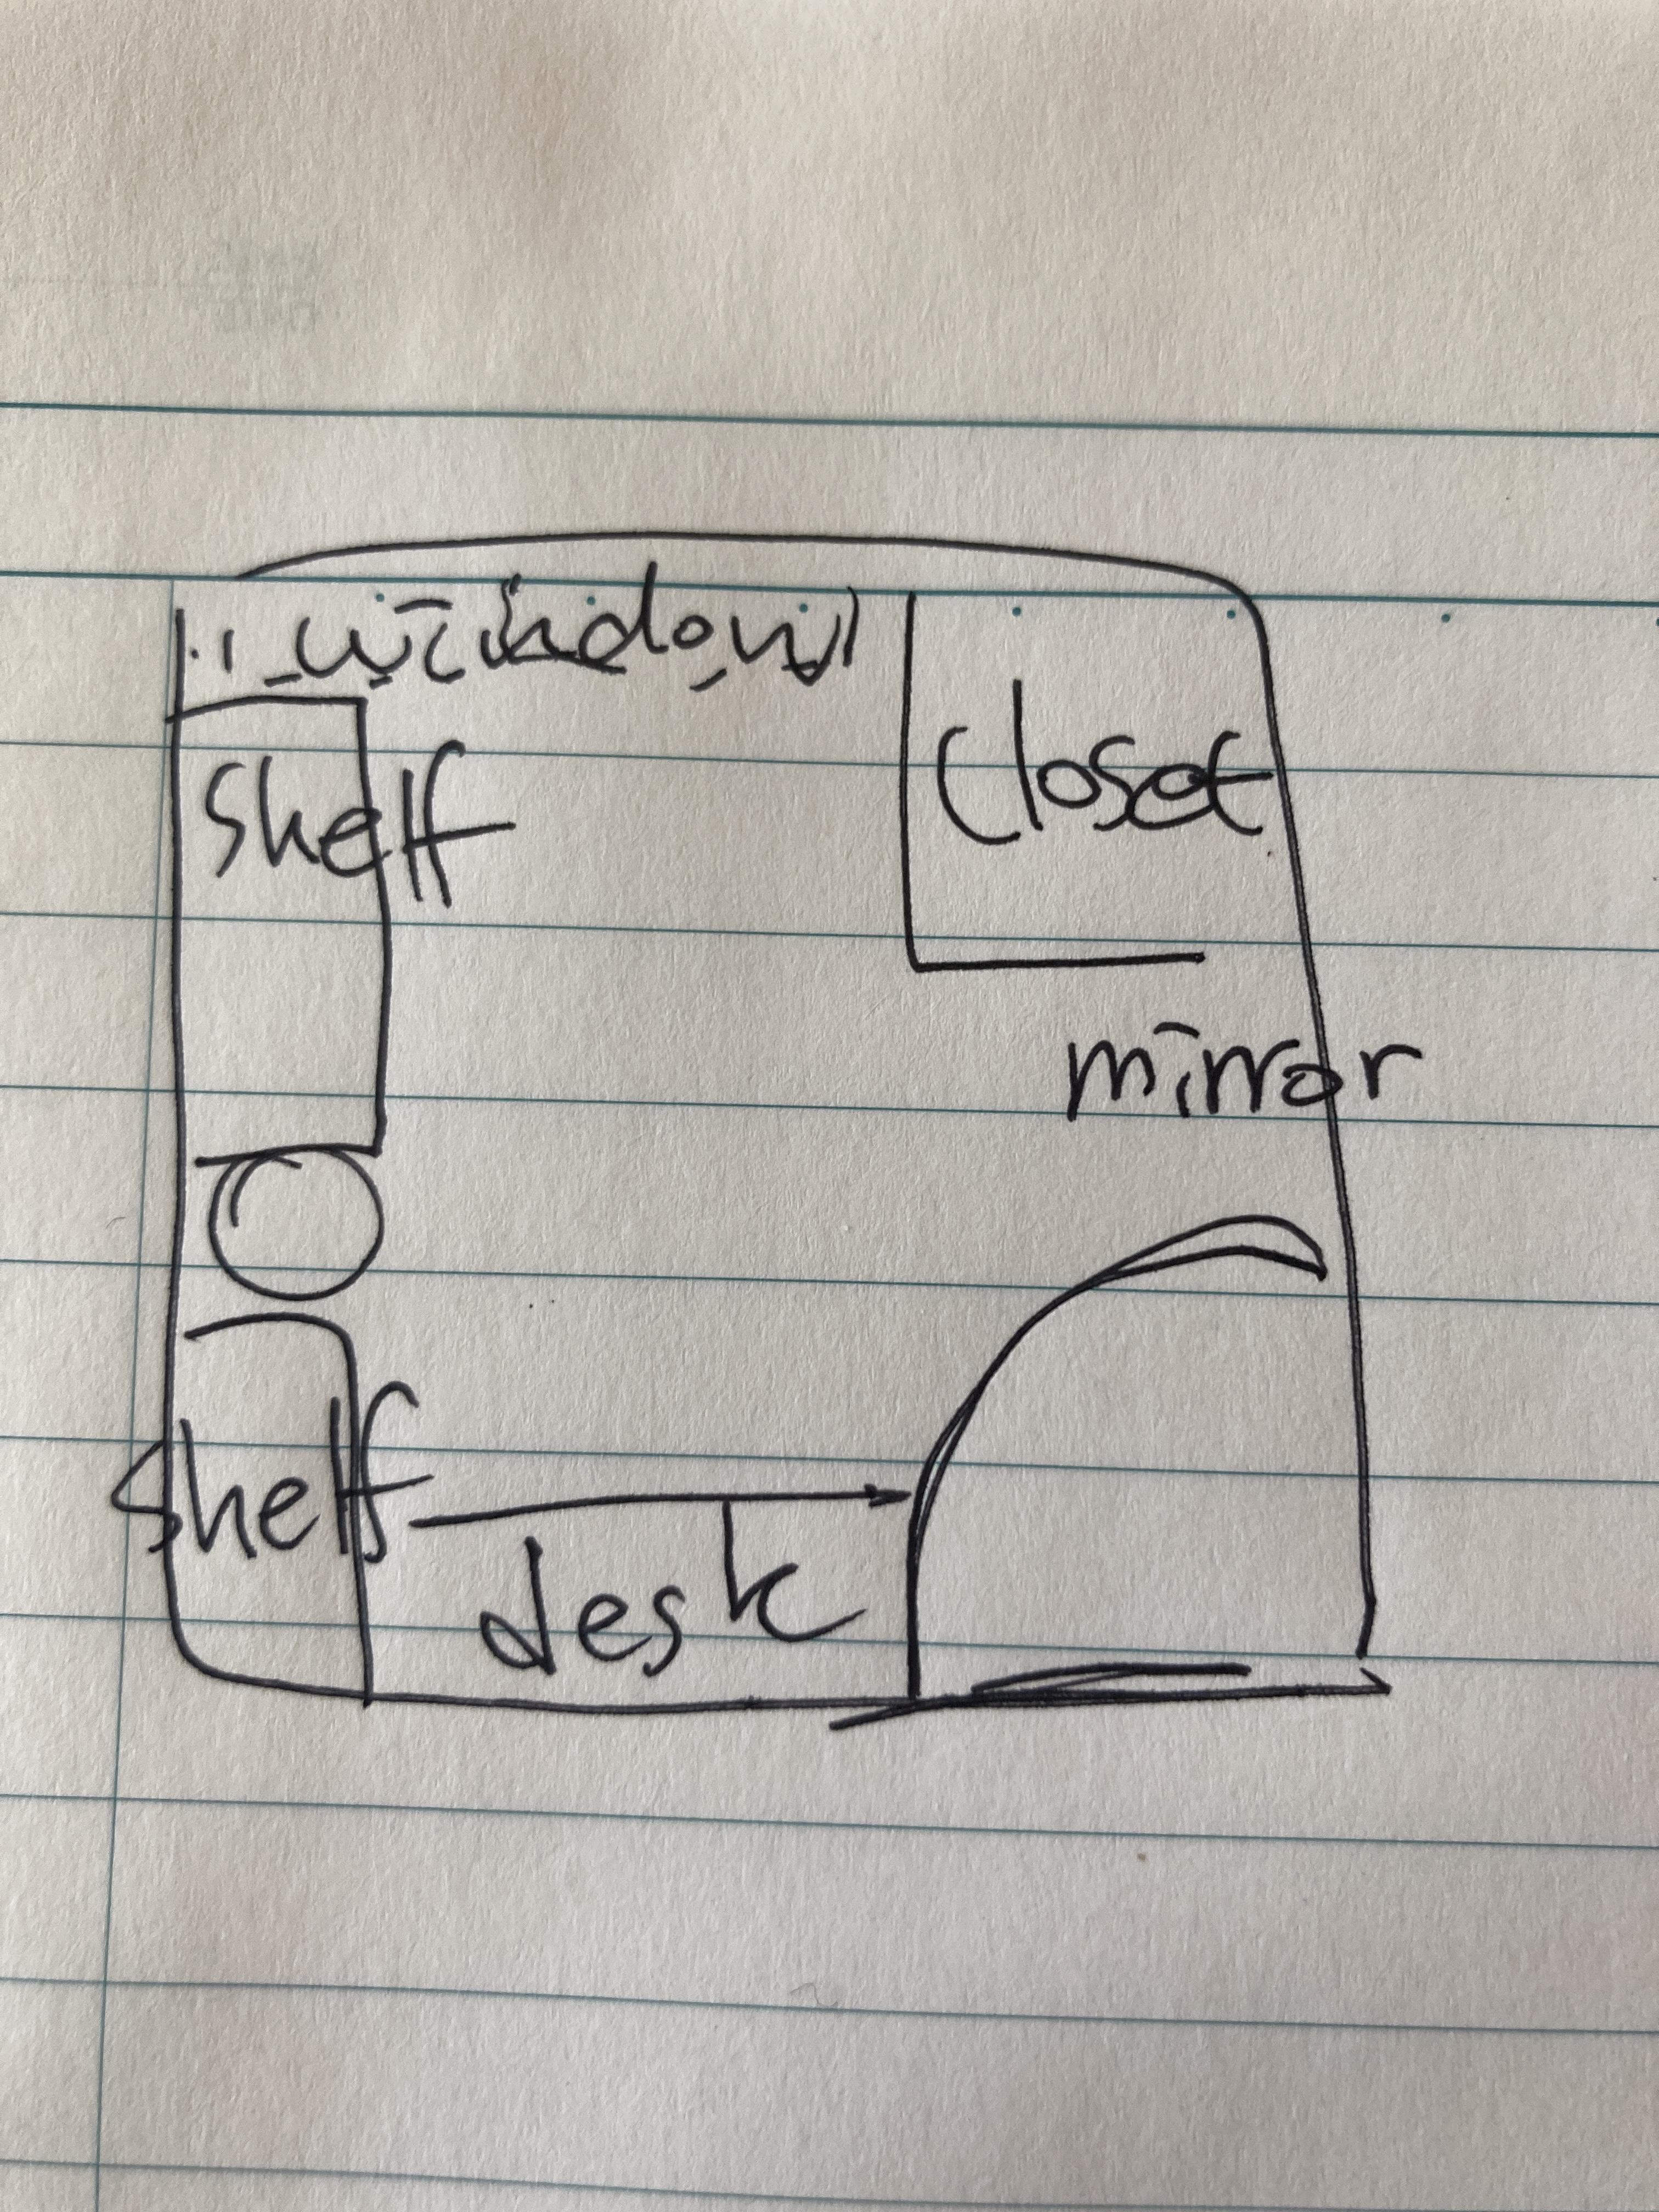 window
shelf
closet
mirror
shelf
desk